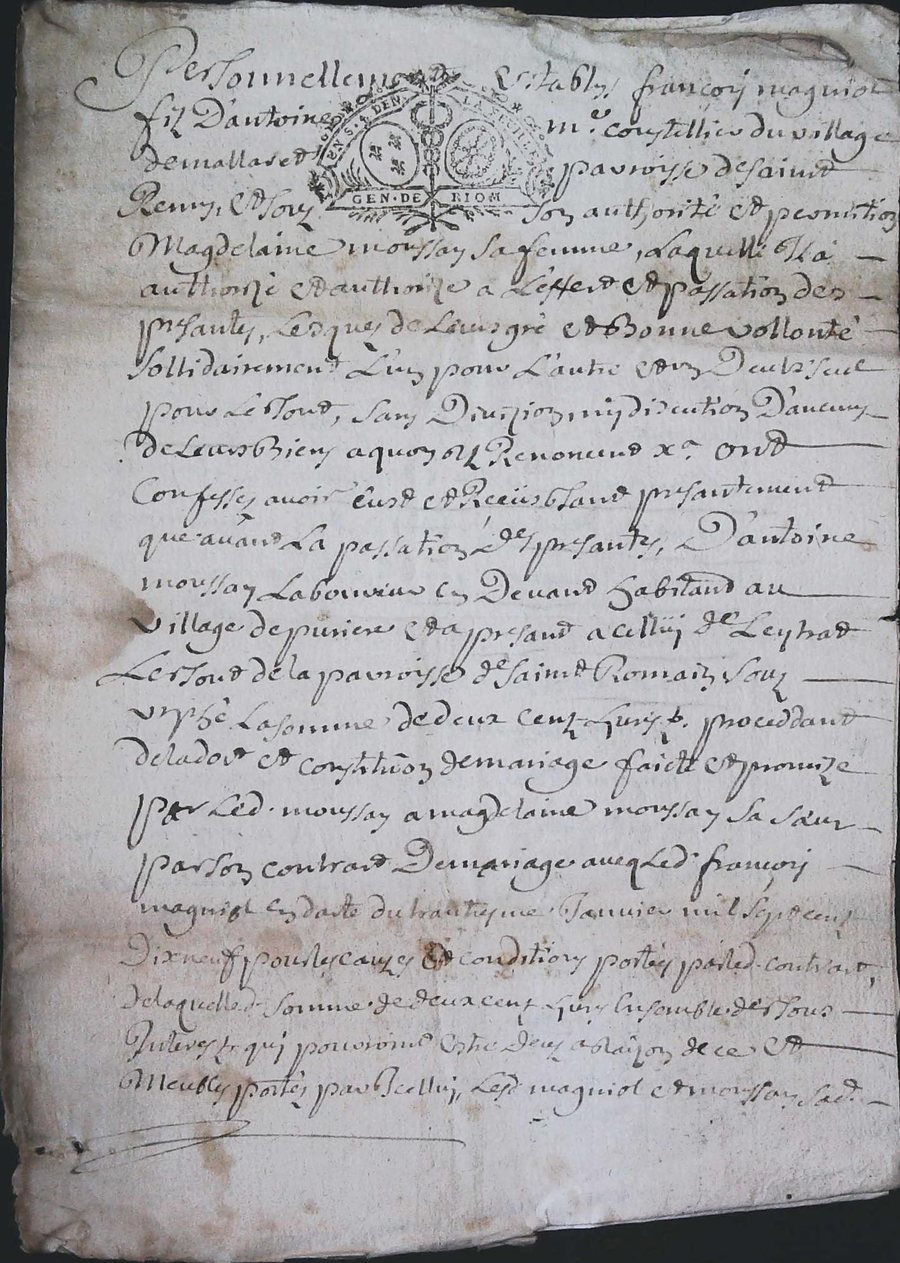 Personnellement Establys françoij magniol
filz D'antoine me coustellier du village
de mallaret parroisse de saint
Remy, Et soubz son authorité et permition
GEN·DE RIOM
Magdelaine moussay sa femme, Laquelle Il a
authorizé et authorize a L'effect et passation des
presantes, Lesques de Leurs gré et Bonne vollonté
sollidairement L'un pour L'autre et un Deulx seul
pour Le Tout, sans Division, ny discution D'aucuns
de Leurs Biens a quoy ont Renoncent xa. ont
Confesses avoir Eust et Receu tant presantement
que avant La passation des presantes, D'antoine
moussay Laboureur Habitand au
village de puriere et a presant a celluij de Leytrat
Le tout de la parroisse de saint Romain souz
urphé La somme de deux cent Livres t. proceddant
de la dot et constitution de mariage faicte et promize
par Led. moussay a magdelaine moussay sa sœur
par son contract De mariage avecq Led. françoij
magniol en datte du trantiesme Janvier mil sept cent
Dix neuf pour les cauzes Et conditions portés par led. contract,
de laquelled. somme de deux cent Livres Ensemble de tous
Interestz qui pourroint Estre Deus a Raizon de ce et
Meubles portés par Icelluij, Lesd. magniol et moussay sad.